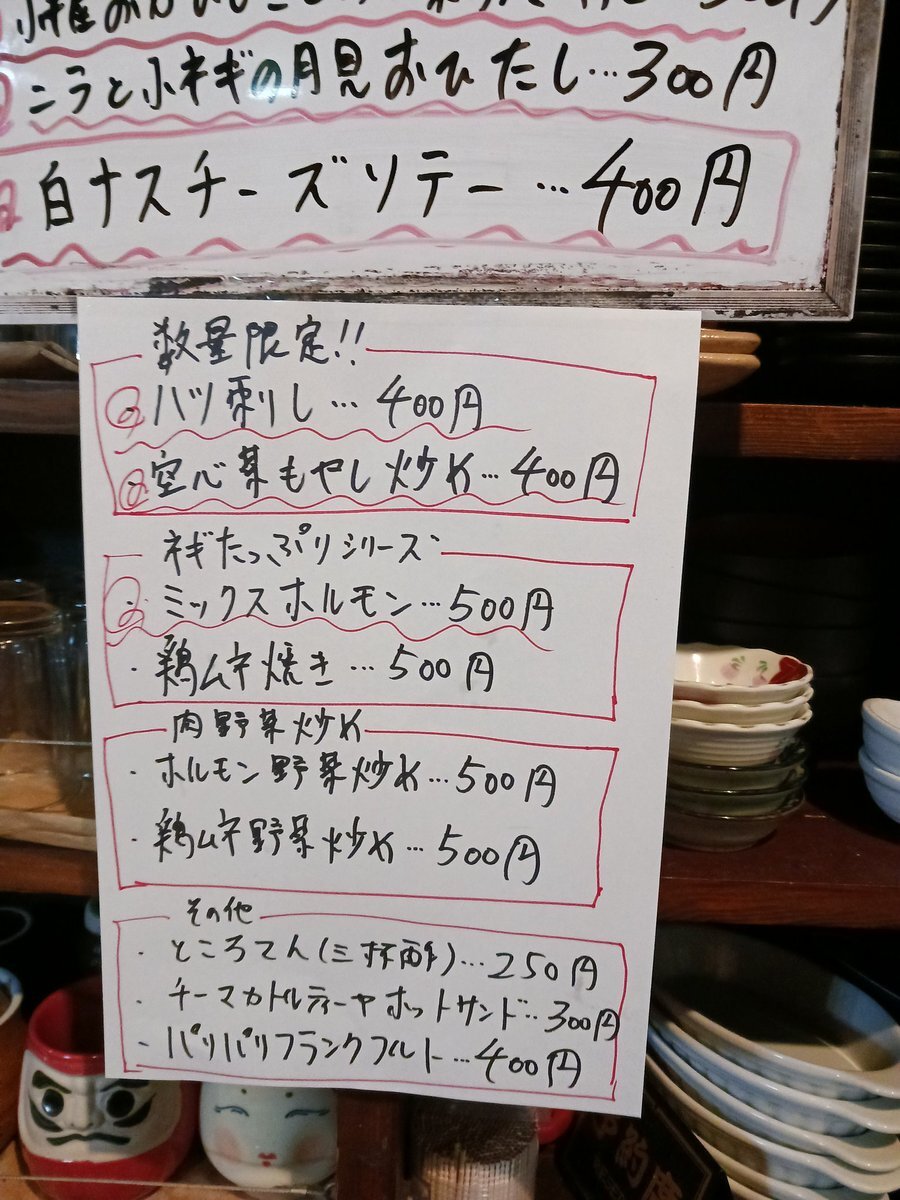 ニラと小ネギの月見おひたし…300円
白ナスチーズソテー…400円
数量限定!!
ハツ刺し…400円
空心菜もやし炒め…400円
ネギたっぷりシリーズ
ミックスホルモン…500円
・鶏ムネ焼き…500円
肉野菜炒め
・ホルモン野菜炒め…500円
・鶏ムネ野菜炒め…500円
その他
・ところてん(三杯酢)…250円
・チーマカトルティーヤホットサンド…300円
・パリパリフランクフルト…400円